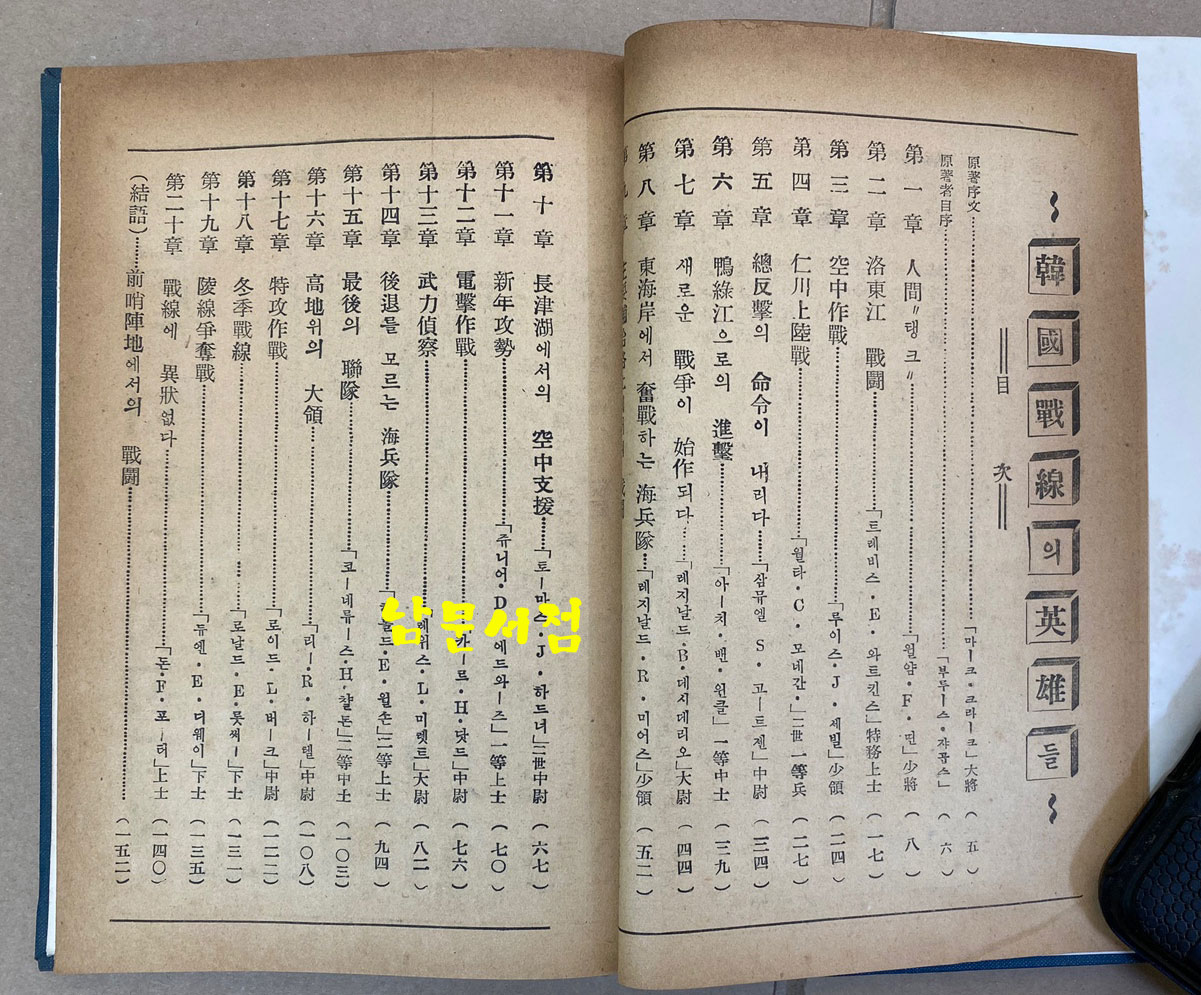 韓國戰線의英雄들
目次
原著序文……「마ー크・크라ー크」大將(五)
原著者目序……「부루ー스・쟈콥스」(六)
第一章 人間〃탱크〃……「윌얌・F・띤」少將(八)
第二章 洛東江 戰鬪……「트레비스・E・와트킨스」特務上士(一七)
第三章 空中作戰……「루이스・J・세빌」少領(二四)
第四章 仁川上陸戰……「월타・C・모네간・」二世一等兵(二七)
第五章 總反擊의 命令이 내리다……「삼뮤엘 S・고ー트젠」中尉(三四)
第六章 鴨綠江으로의 進擊……「아ー치・밴・윈클」一等中士(三九)
第七章 새로운 戰爭이 始作되다……「레지날드・B・데시데리오」大尉(四四)
第八章 東海岸에서 奮戰하는 海兵隊……「레지날드・R・미어스」少領(五二)
第十章 長津湖에서의 空中支援……「토ー마스・J・하드너」二世中尉(六七)
第十一章 新年攻勢……「쥬니어・D・에드와ー즈」一等上士(七〇)
第十二章 電擊作戰……・카ー르・H・닷드」中尉(七六)
第十三章 武力偵察……레위스・L・미렛트」大尉(八二)
第十四章 後退를 모르는 海兵隊……드・E・윌손」二等上士(九四)
第十五章 最後의 聯隊……「코ー네류ー스・H・챨톤」二等中士(一〇三)
第十六章 高地위의 大領……「리ー・R・하ー텔」中尉(一〇八)
第十七章 特攻作戰……「로이드・L・버ー크」中尉(一二二)
第十八章 冬季戰線……「로날드・E・롯써ー」下士(一三一)
第十九章 陵線爭奪戰……「듀엔・E・디웨이」下士(一三五)
第二十章 戰線에 異狀없다……「돈・F・포ー터」上士(一四〇)
(結語)……前哨陣地에서의 戰鬪……(一五二)
남문서점